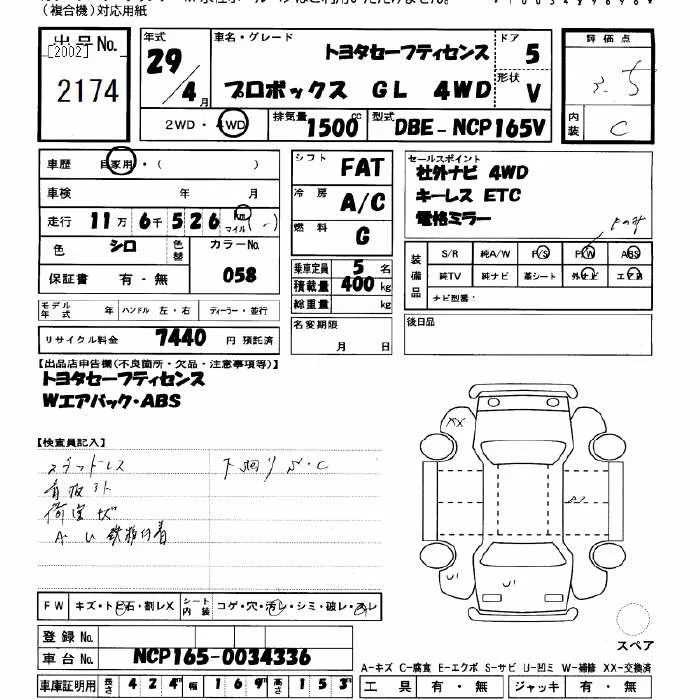 （複合機）対応用紙
出品No.
[2002]
2174
年式 29/4月
車名・グレード トヨタセーフティセンス
プロボックス GL 4WD
ドア 5
形状 V
評価点
内装 C
2WD・4WD
排気量 1500cc
型式 DBE-NCP165V
車歴 自家用・( )
車検 年 月
走行 11万6千526 Km マイル
色 シロ 色替 カラーNo.
保証書 有・無 058
モデル年式 年 ハンドル 左・右 ディーラー・並行
リサイクル料金 7440 円 預託済
シフト FAT
冷房 A/C
燃料 G
乗車定員 5 名
積載量 400 kg
総重量 kg
名変期限 月 日
セールスポイント
社外ナビ 4WD
キーレス ETC
電格ミラー
装備品
S/R 純A/W P/S P/W ABS
純TV 純ナビ 革シート 外ナビ エアB
ナビ型番：
後日品
【出品店申告欄(不良箇所・欠品・注意事項等)】
トヨタセーフティセンス
Wエアバック・ABS
【検査員記入】
スタッドレス
下回りサ・C
看板跡
荷室
FW キズ・トビ石・割レX
シート内装 コゲ・穴・汚レ・シミ・破レ・スレ
登録No.
車台No. NCP165-0034336
車庫証明用 長さ 424 幅 169 高さ 153
XX
A
U1
U1
スペア
A-キズ C-腐食 E-エクボ S-サビ U-凹ミ W-補修 XX-交換済
工具 有・無 ジャッキ 有・無